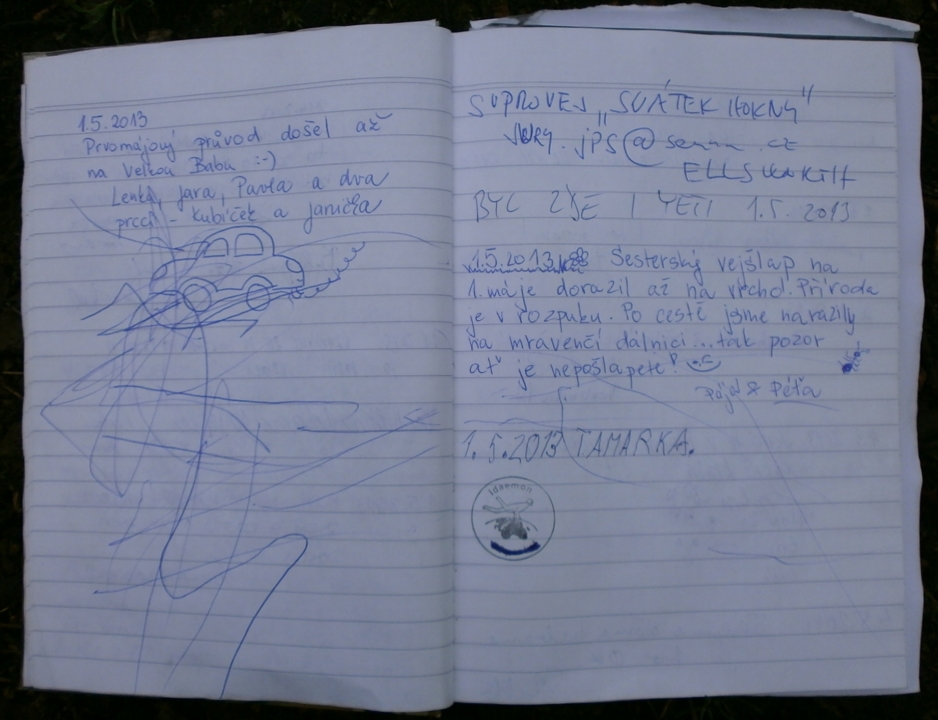 1.5.2013
Prvomájový průvod došel až
na Velkou Babu :-)
Lenka, Jara, Pavla a dva
prcci - Kubíček a Janička
SUPROVEJ „SVÁTEK HOKNY"
jPS@
BYL ZDE I YETI 1.5. 2013
1.5.2013 Sesterský vejšlap na
1. máje dorazil až na vrchol. Příroda
je v rozpuku. Po cestě jsme narazily
na mravenčí dálnici...tak pozor
ať je nepošlapete!
& Péťa
1.5.2013 TAMARKA.